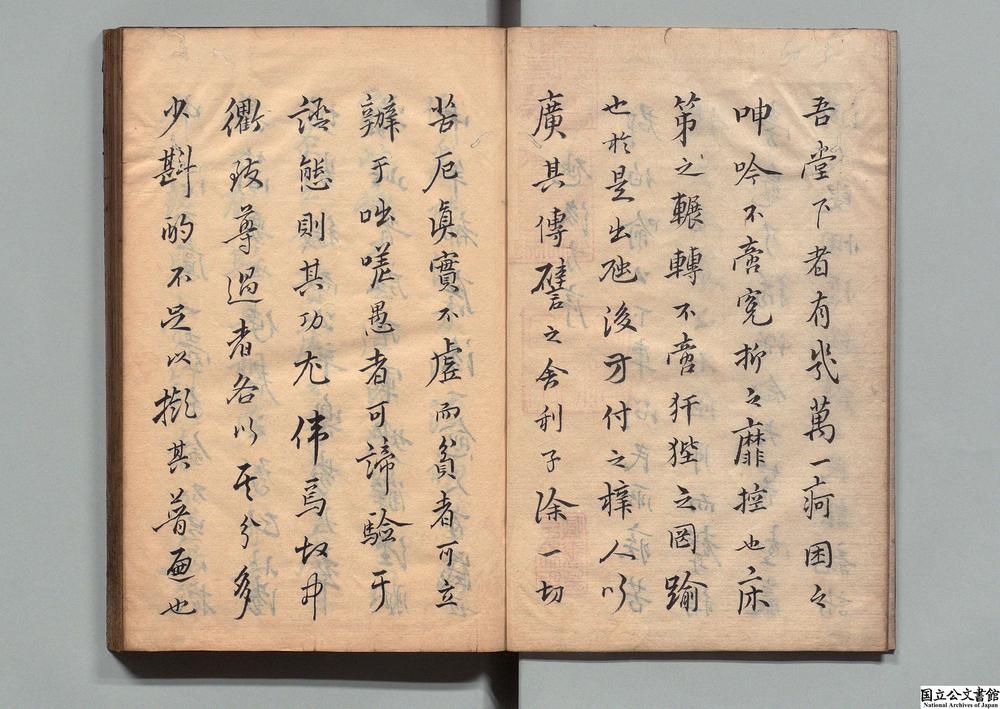 吾堂下者有幾萬一疴困之
呻吟不啻冤抑之靡控也床
第之輾轉不啻犴狴之罔踰
也於是出秘後方付之梓人以
廣其傳譬之舍利子除一切
苦厄真實不虛而貧者可立
辦于咄嗟愚者可諦驗于
證態則其功尤偉焉故中
衢致尊過者各以其分多
少斟酌不足以擬其普遍也
国立公文書館
National Archives of Japan